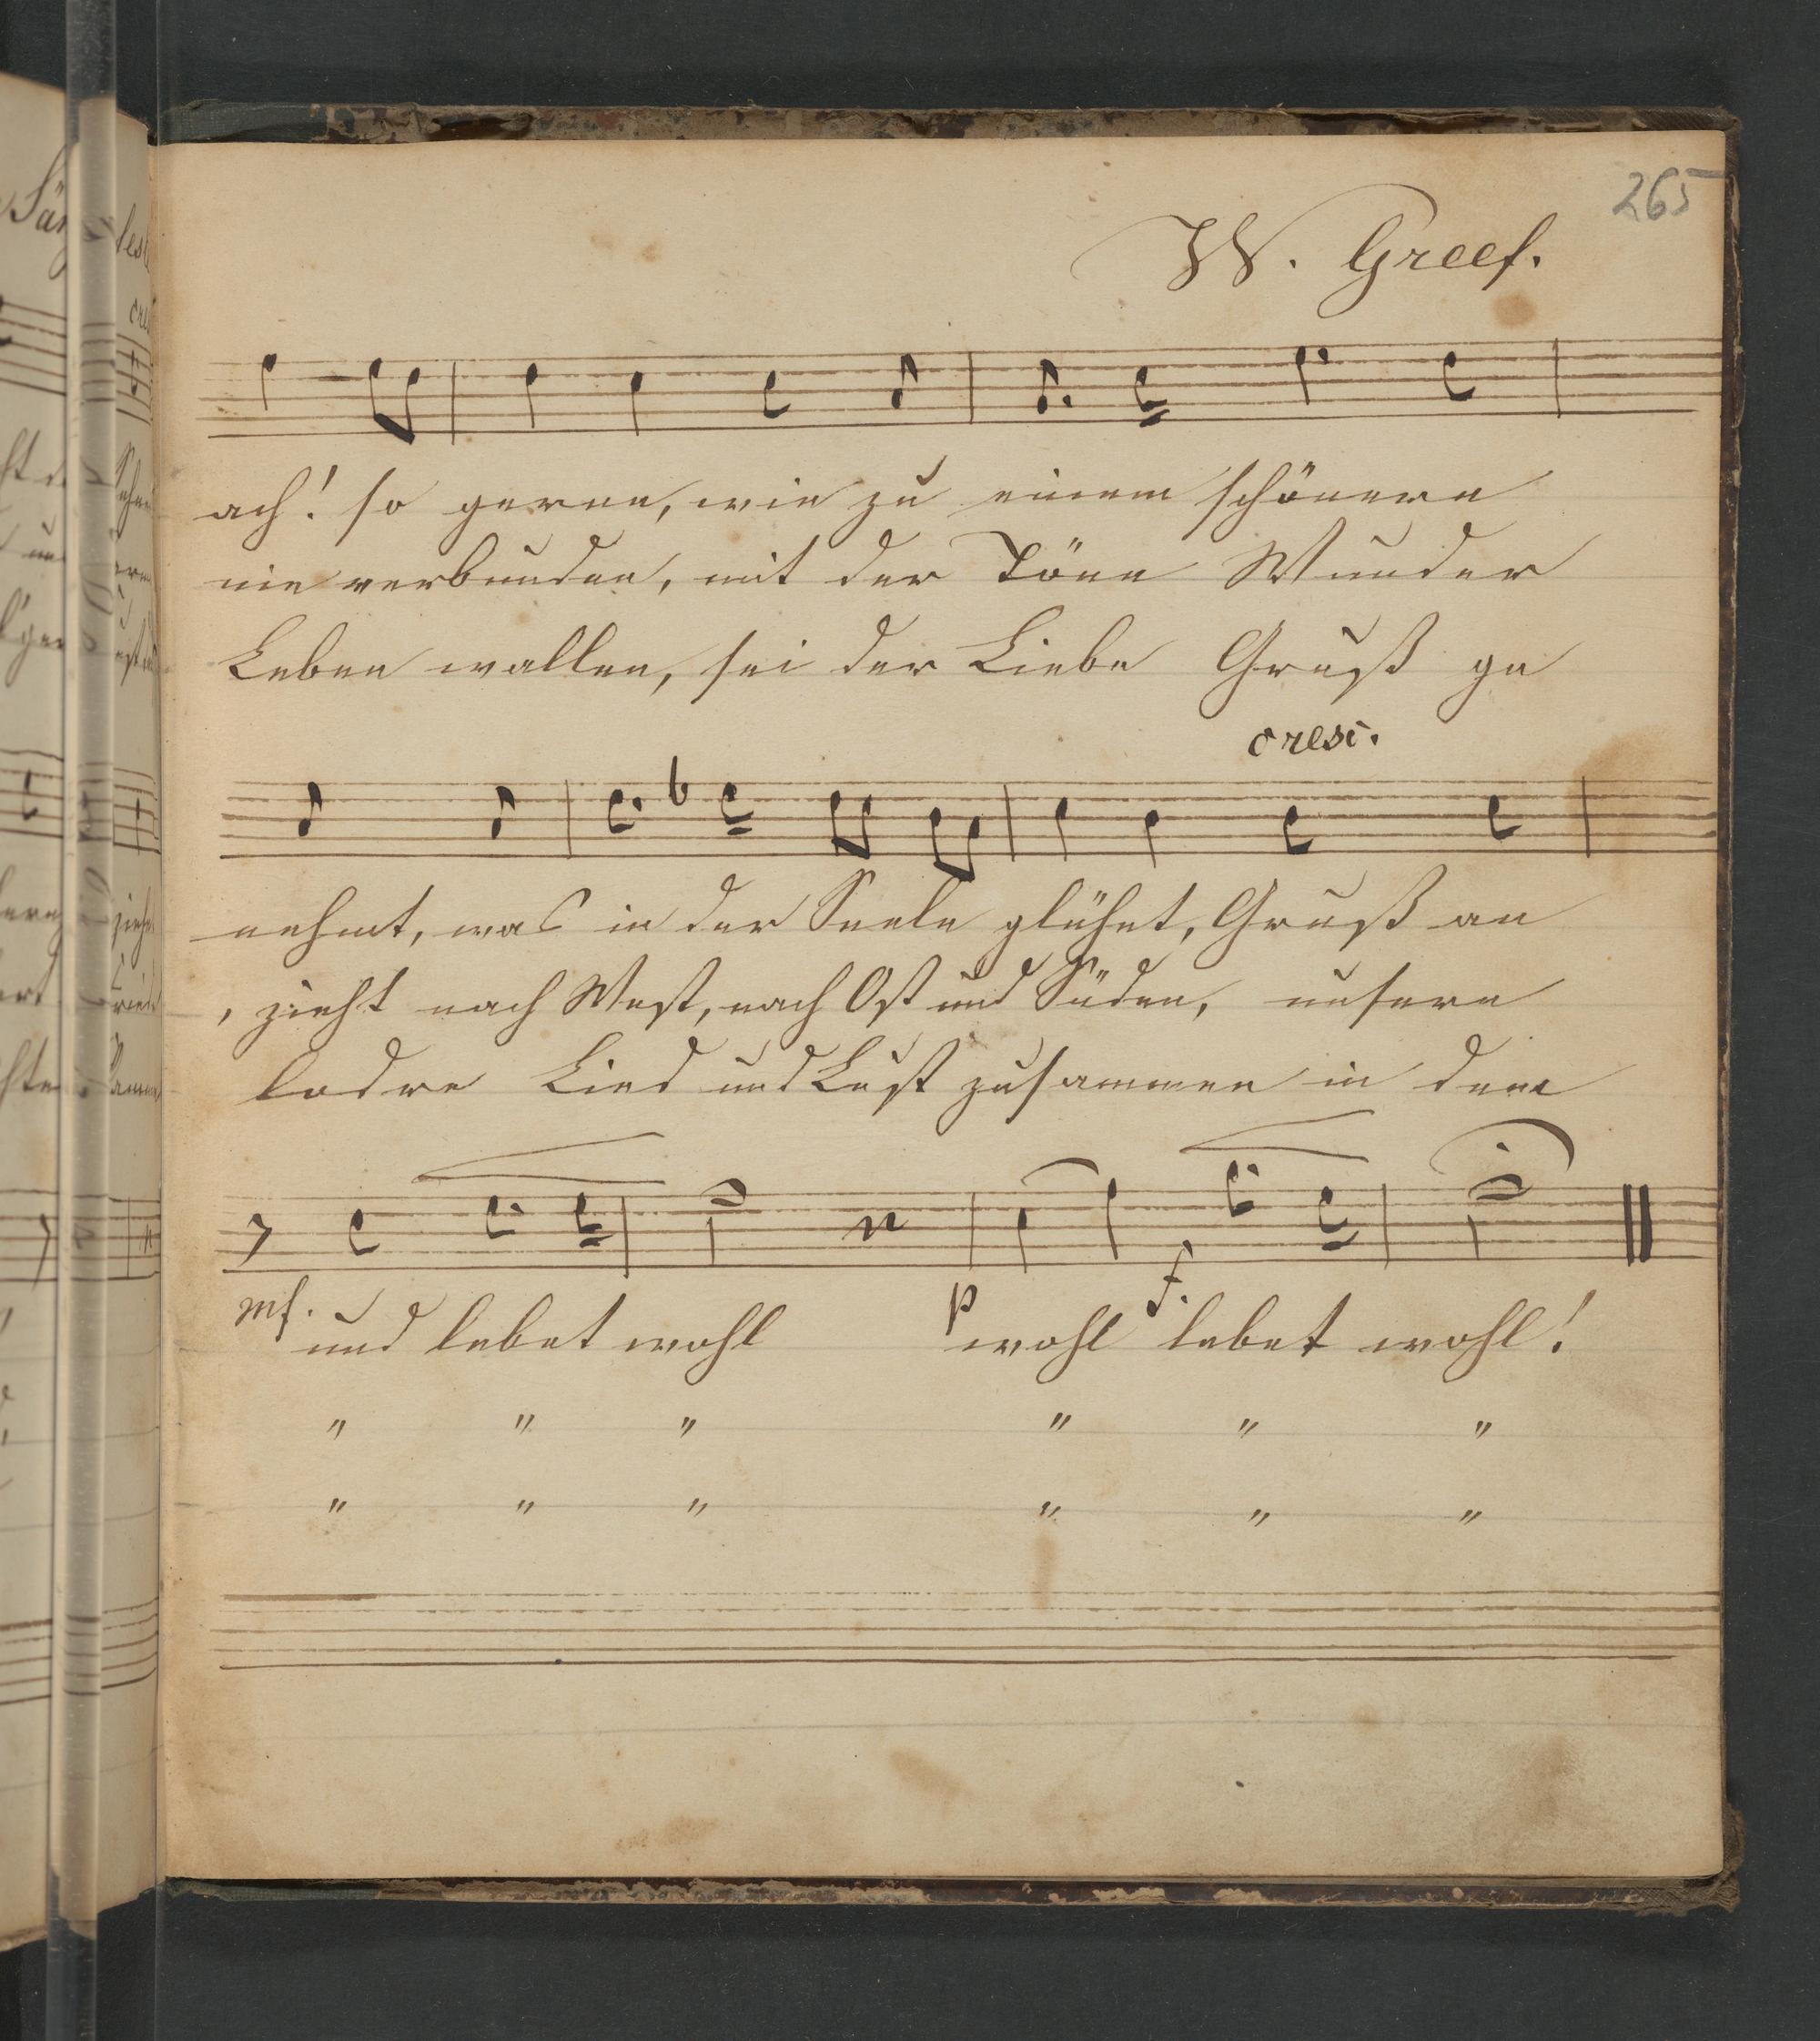 265
W. Greef.
ach! so gerne, wie zu einem schönern
nie verbunden, mit der Töne Wunder
Leben wallen, sei der Liebe Gruß ge
cresc.
nehmt, was in der Seele glühet, Gruß an
, zieht nach West, nach Ost und Süden, unsere
lodre Lied und Lust zusammen in dem
mf. p f.
und lebet wohl wohl lebet wohl!
" " " " " "
" " " " " "